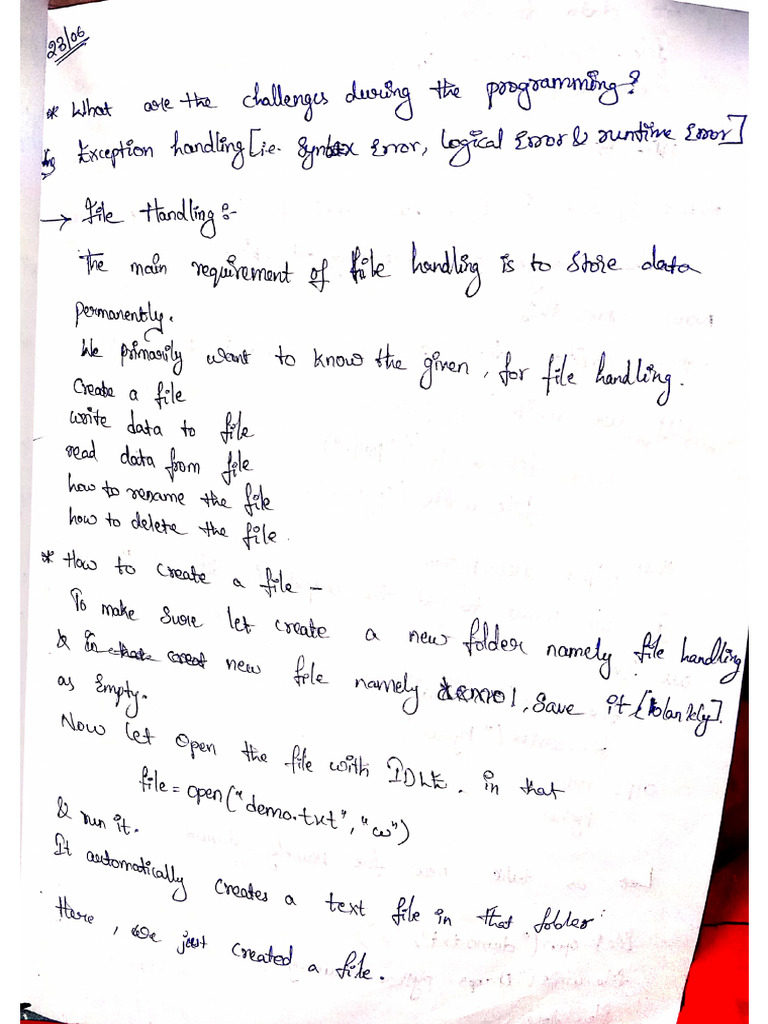 23/06
* What are the challenges during the programming?
Exception handling [i.e. Syntax Error, logical Error & runtime Error]
→ File Handling:-
The main requirement of file handling is to store data
permanently.
We primarily want to know the given, for file handling.
Create a file
write data to file
read data from file
how to rename the file
how to delete the file.
* How to create a file -
To make sure let create a new folder namely file handling
& in that creat new file namely demo1, save it [blankly].
as Empty.
Now let open the file with IDLE. in that
file = open("demo.txt", "w")
& run it.
It automatically creates a text file in that folder.
Here, we just created a file.